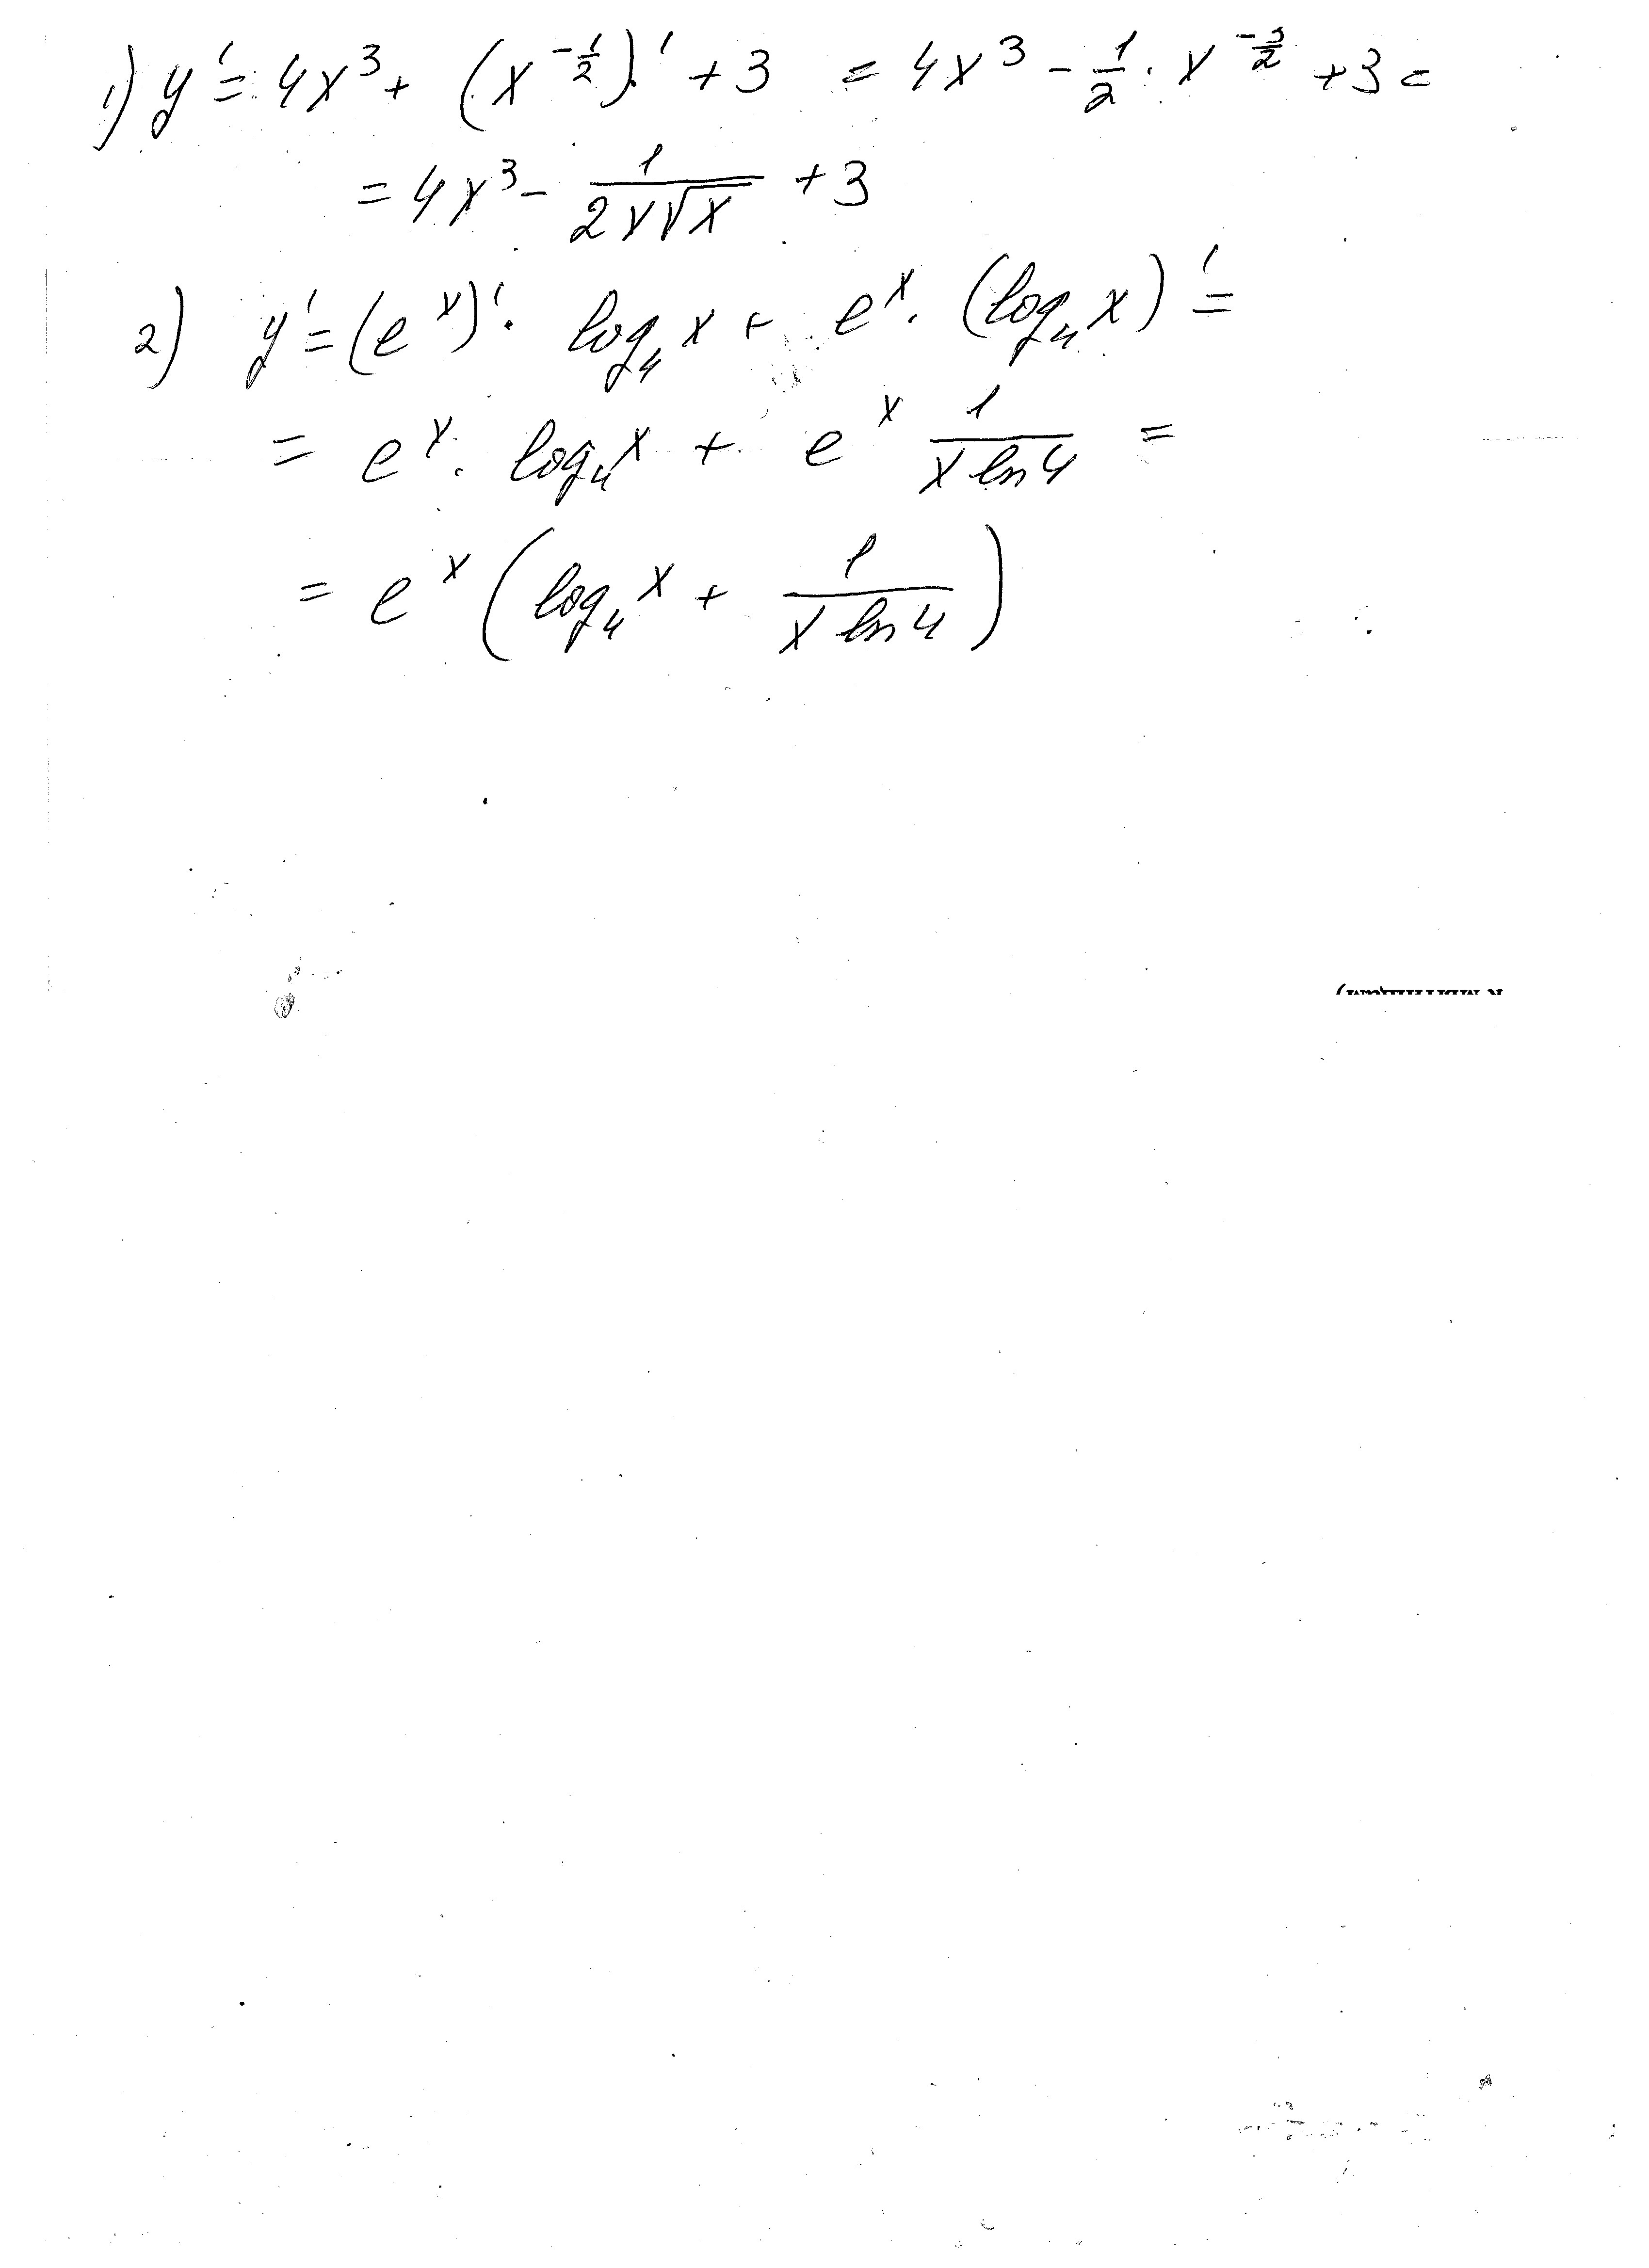 1) y' = 4x³ + (x^(-1/2))' + 3 = 4x³ - 1/2 · x^(-3/2) + 3 =
= 4x³ - 1/(2x√x) + 3
2) y' = (e^x)' · log₄x + e^x · (log₄x)' =
= e^x · log₄x + e^x 1/(x ln 4) =
= e^x (log₄x + 1/(x ln 4))